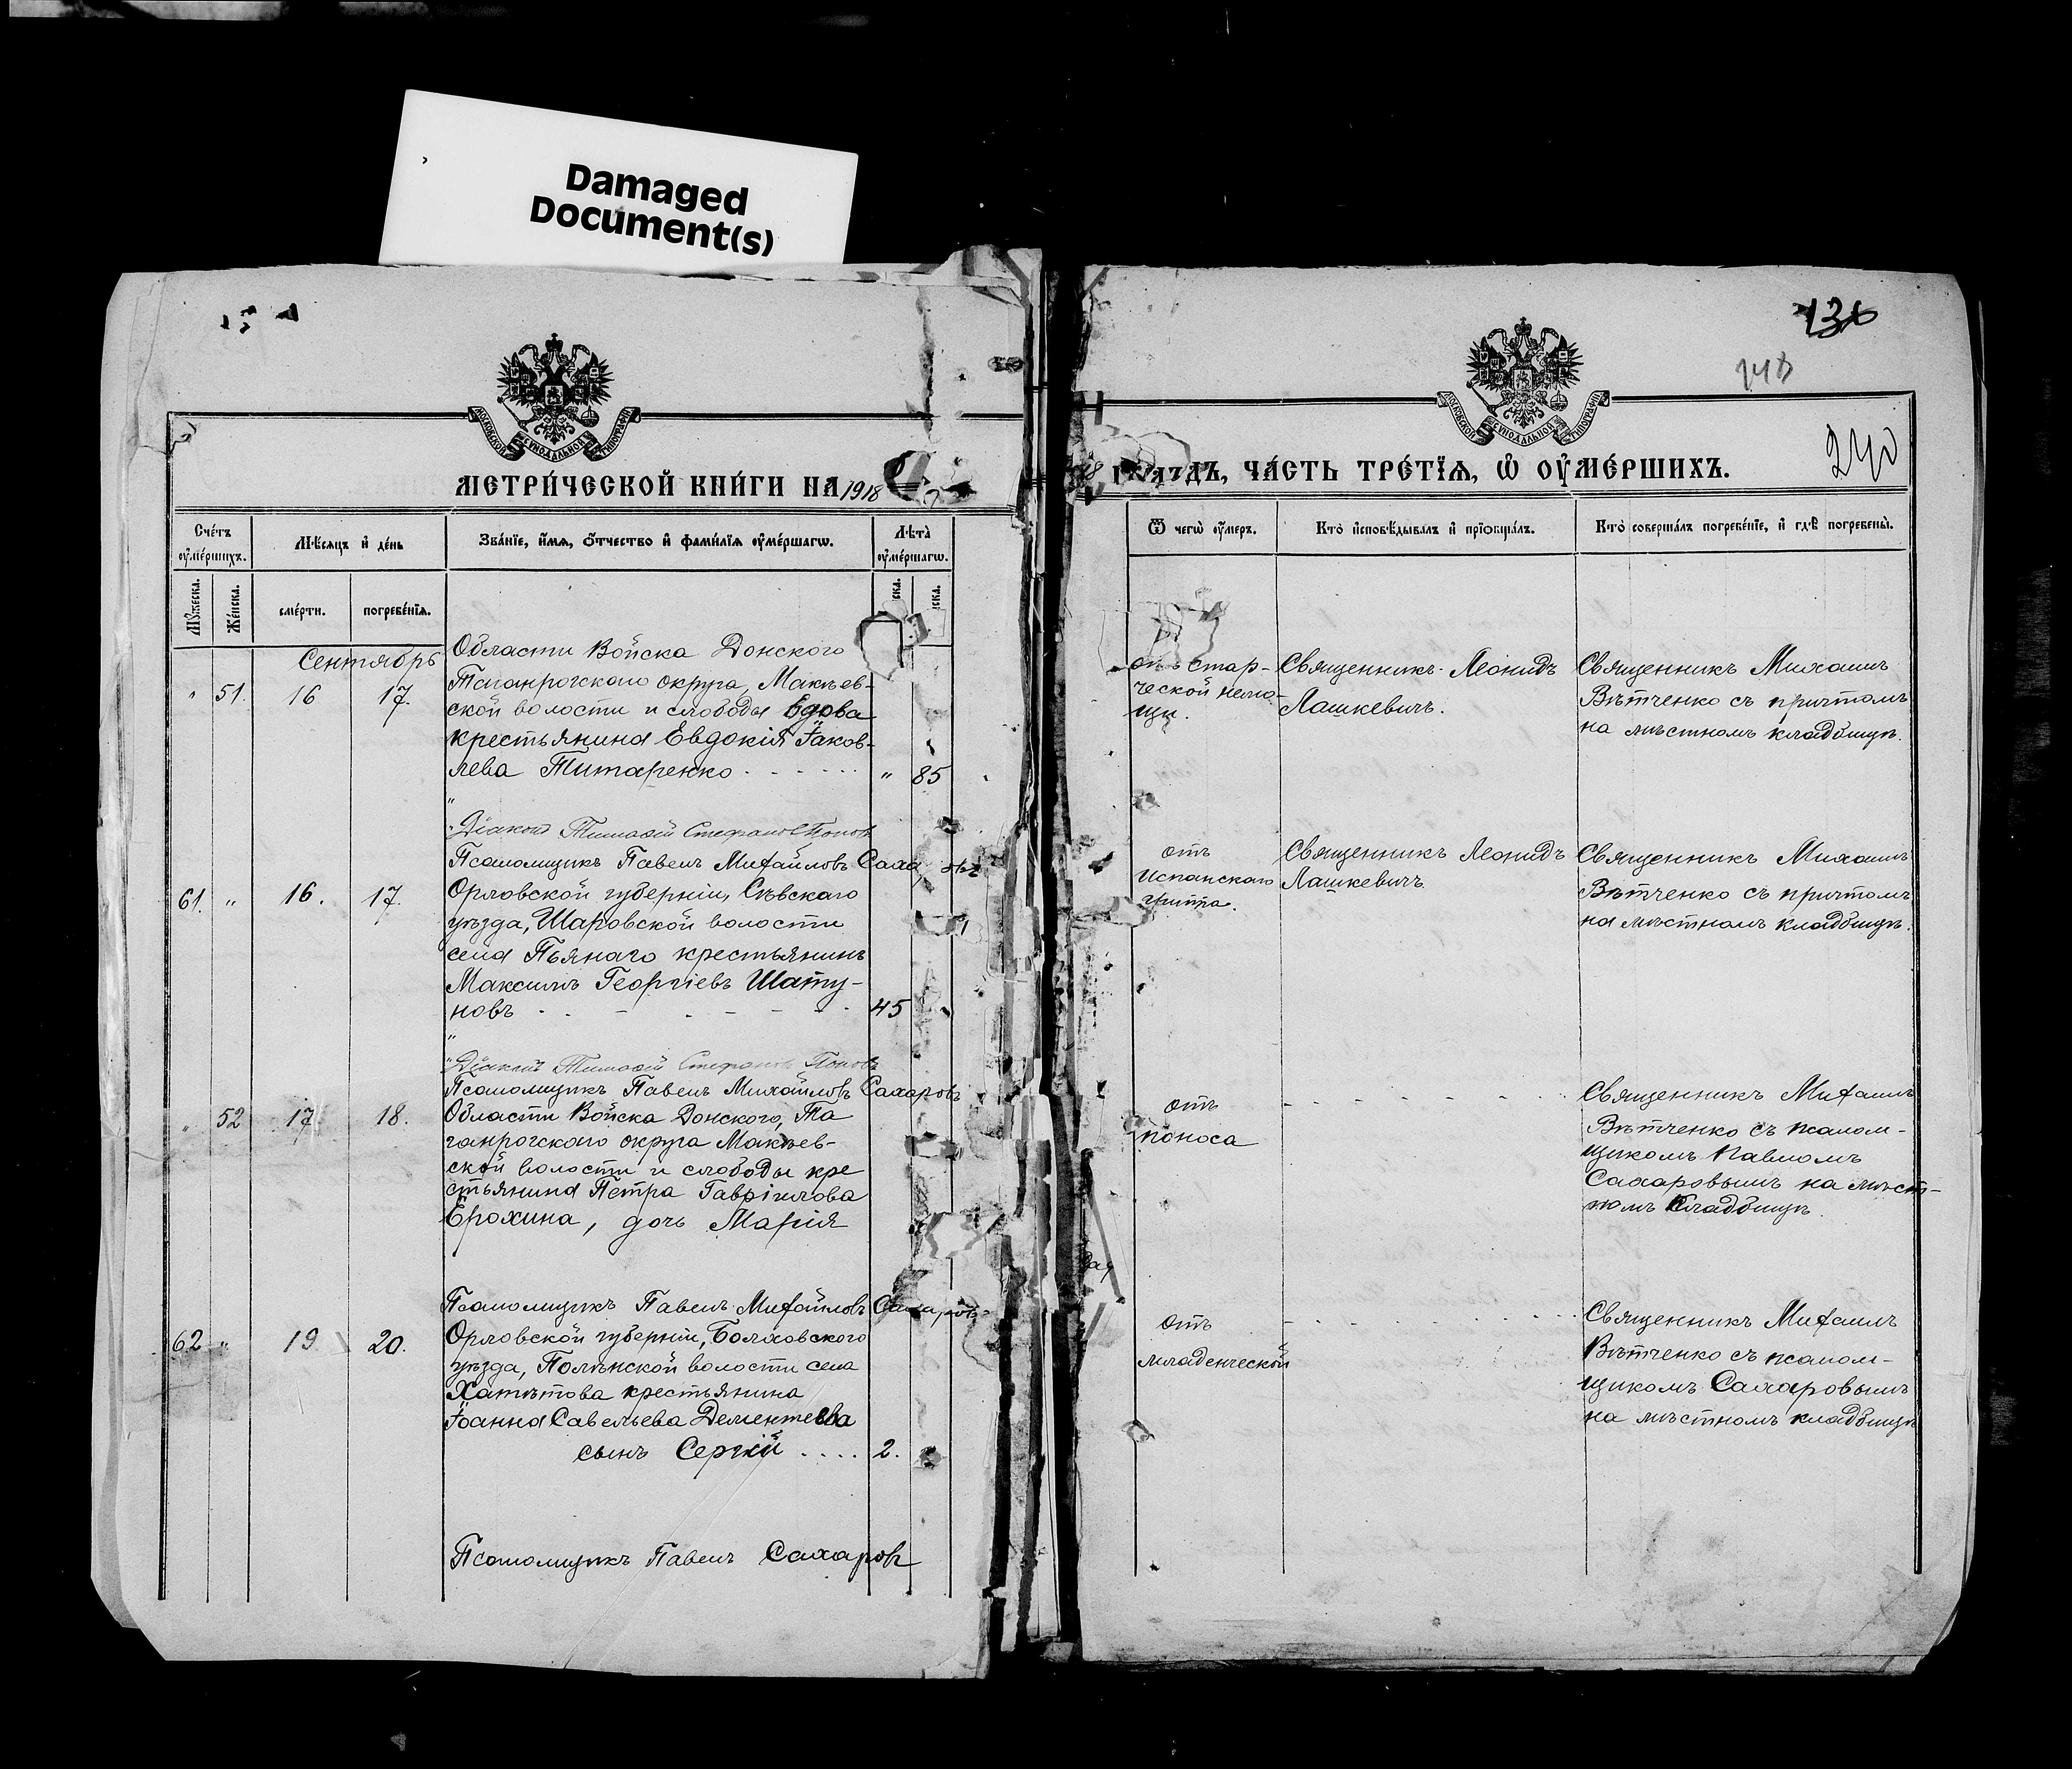 Damaged
Document(s)
136
240
МОСКОВСКОЙ СѴНОДАЛЬНОЙ ТИПОГРАФІИ
МОСКОВСКОЙ СѴНОДАЛЬНОЙ ТИПОГРАФІИ
МЕТРИ́ЧЕСКОЙ КНИ́ГИ НА 1918
ГОДЪ, ЧА́СТЬ ТРЕ́ТЇЯ, Ѽ ОУМЕ́РШИХЪ.
Сче́тъ оуме́ршихъ.
Мѣ́сяцъ и де́нь
Зва́нїе, и́мя, о́тчество и фами́лїя оуме́ршагѡ.
Лѣта̀ оуме́ршагѡ.
Ѿ чегѡ̀ оу́меръ.
Кто̀ исповѣ́дывалъ и прїѡбща́лъ.
Кто̀ соверша́лъ погребе́нїе, и гдѣ̀ погребены̀.
Му́жеска.
Же́нска.
сме́рти.
погребе́нїя.
ска.
ска.
Сентябрь
" 51. 16 17.
Области Войска Донского
Таганрогскаго округа, Макѣев-
ской волости и слободы вдова
крестьянина Евдокія Іаков-
лева Титаренко . . . . . . " 85
отъ стар-
ческой немо-
щи.
Священникъ Леонидъ
Лашкевичъ.
Священникъ Михаилъ
Вѣтченко съ причтомъ
на мѣстномъ кладбищѣ.
Діаконъ Тимоѳей Стефановъ Поповъ
Псаломщикъ Павелъ Михайловъ Саха овъ
61. " 16. 17.
Орловской губерніи, Сѣвскаго
уѣзда, Шаровской волости
села Пьянаго крестьянинъ
Максимъ Георгіевъ Шату-
новъ . . - . - - - . 45
отъ
испанскаго
гриппа.
Священникъ Леонидъ
Лашкевичъ.
Священникъ Михаилъ
Вѣтченко съ причтомъ
на мѣстномъ кладбищѣ.
Діаконъ Тимоѳей Стефановъ Поповъ
Псаломщикъ Павелъ Михайловъ Сахаровъ
" 52 17 18.
Области Войска Донского, Та
ганрогскаго округа Макѣев-
ской волости и слободы кре
стьянина Петра Гавріилова
Ерохина, дочь Марія
отъ
поноса
Священникъ Михаилъ
Вѣтченко съ псалом-
щикомъ Павломъ
Сахаровымъ на мѣст-
номъ кладбищѣ.
Псаломщикъ Павелъ Михайловъ Саха ровъ
62 " 19 20.
Орловской губерніи, Болховского
уѣзда, Полѣнской волости села
Хатѣтова крестьянина
Іоанна Савельева Дементьева
сынъ Сергій . . . . 2.
отъ
младенческой
Священникъ Михаилъ
Вѣтченко съ псалом-
щикомъ Сахаровымъ
на мѣстномъ кладбищѣ
Псаломщикъ Павелъ Сахаровъ